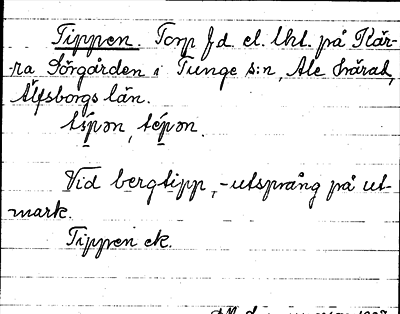 Tippen. Torp f.d. el. lht. på Kär-
ra Sörgården i Tunge s:n, Ale härad,
Älfsborgs län.
tipən, tépən.
Vid bergtipp, -utsprång på ut-
mark.
Tippen ek.